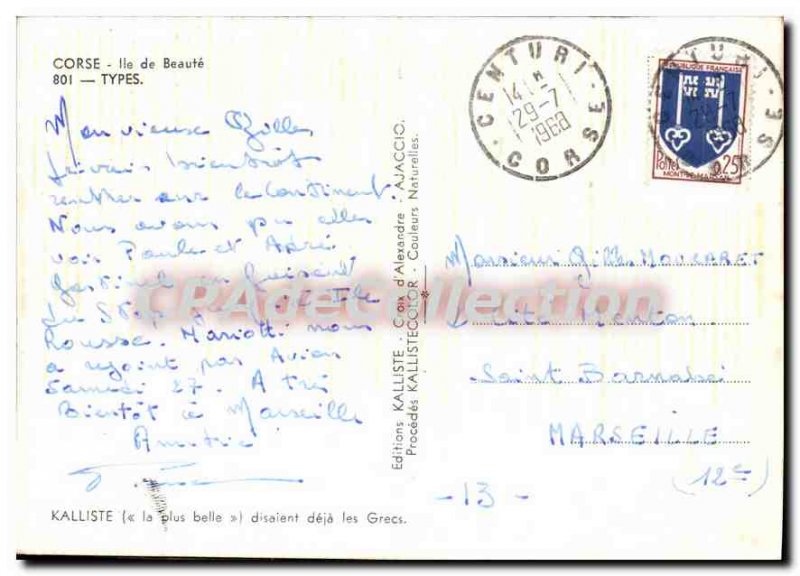 CORSE - Ile de Beauté
801 — TYPES.
Mon vieux Gilles
Je vais bientôt
rentrer sur le Continent.
Nous avons pu aller
voir Paule et André
en faisant
du Stop jusqu'à Ile
Rousse. Mariotti nous
a rejoint par Avion
Samedi 27. A très
Bientôt à Marseille
Amitié
KALLISTE (« la plus belle ») disaient déjà les Grecs.
Editions KALLISTE - Croix d'Alexandre - AJACCIO.
Procédés KALLISTECOLOR - Couleurs Naturelles.
CENTURI - CORSE
14 H
29-7
1968
REPUBLIQUE FRANÇAISE
Postes 0,25
MONT-DE-MARSAN
CENTURI - CORSE
Monsieur Gilles MOUCARET
Cité
Saint Barnabé
MARSEILLE
(12e)
- 13 -
CPAdeCollection